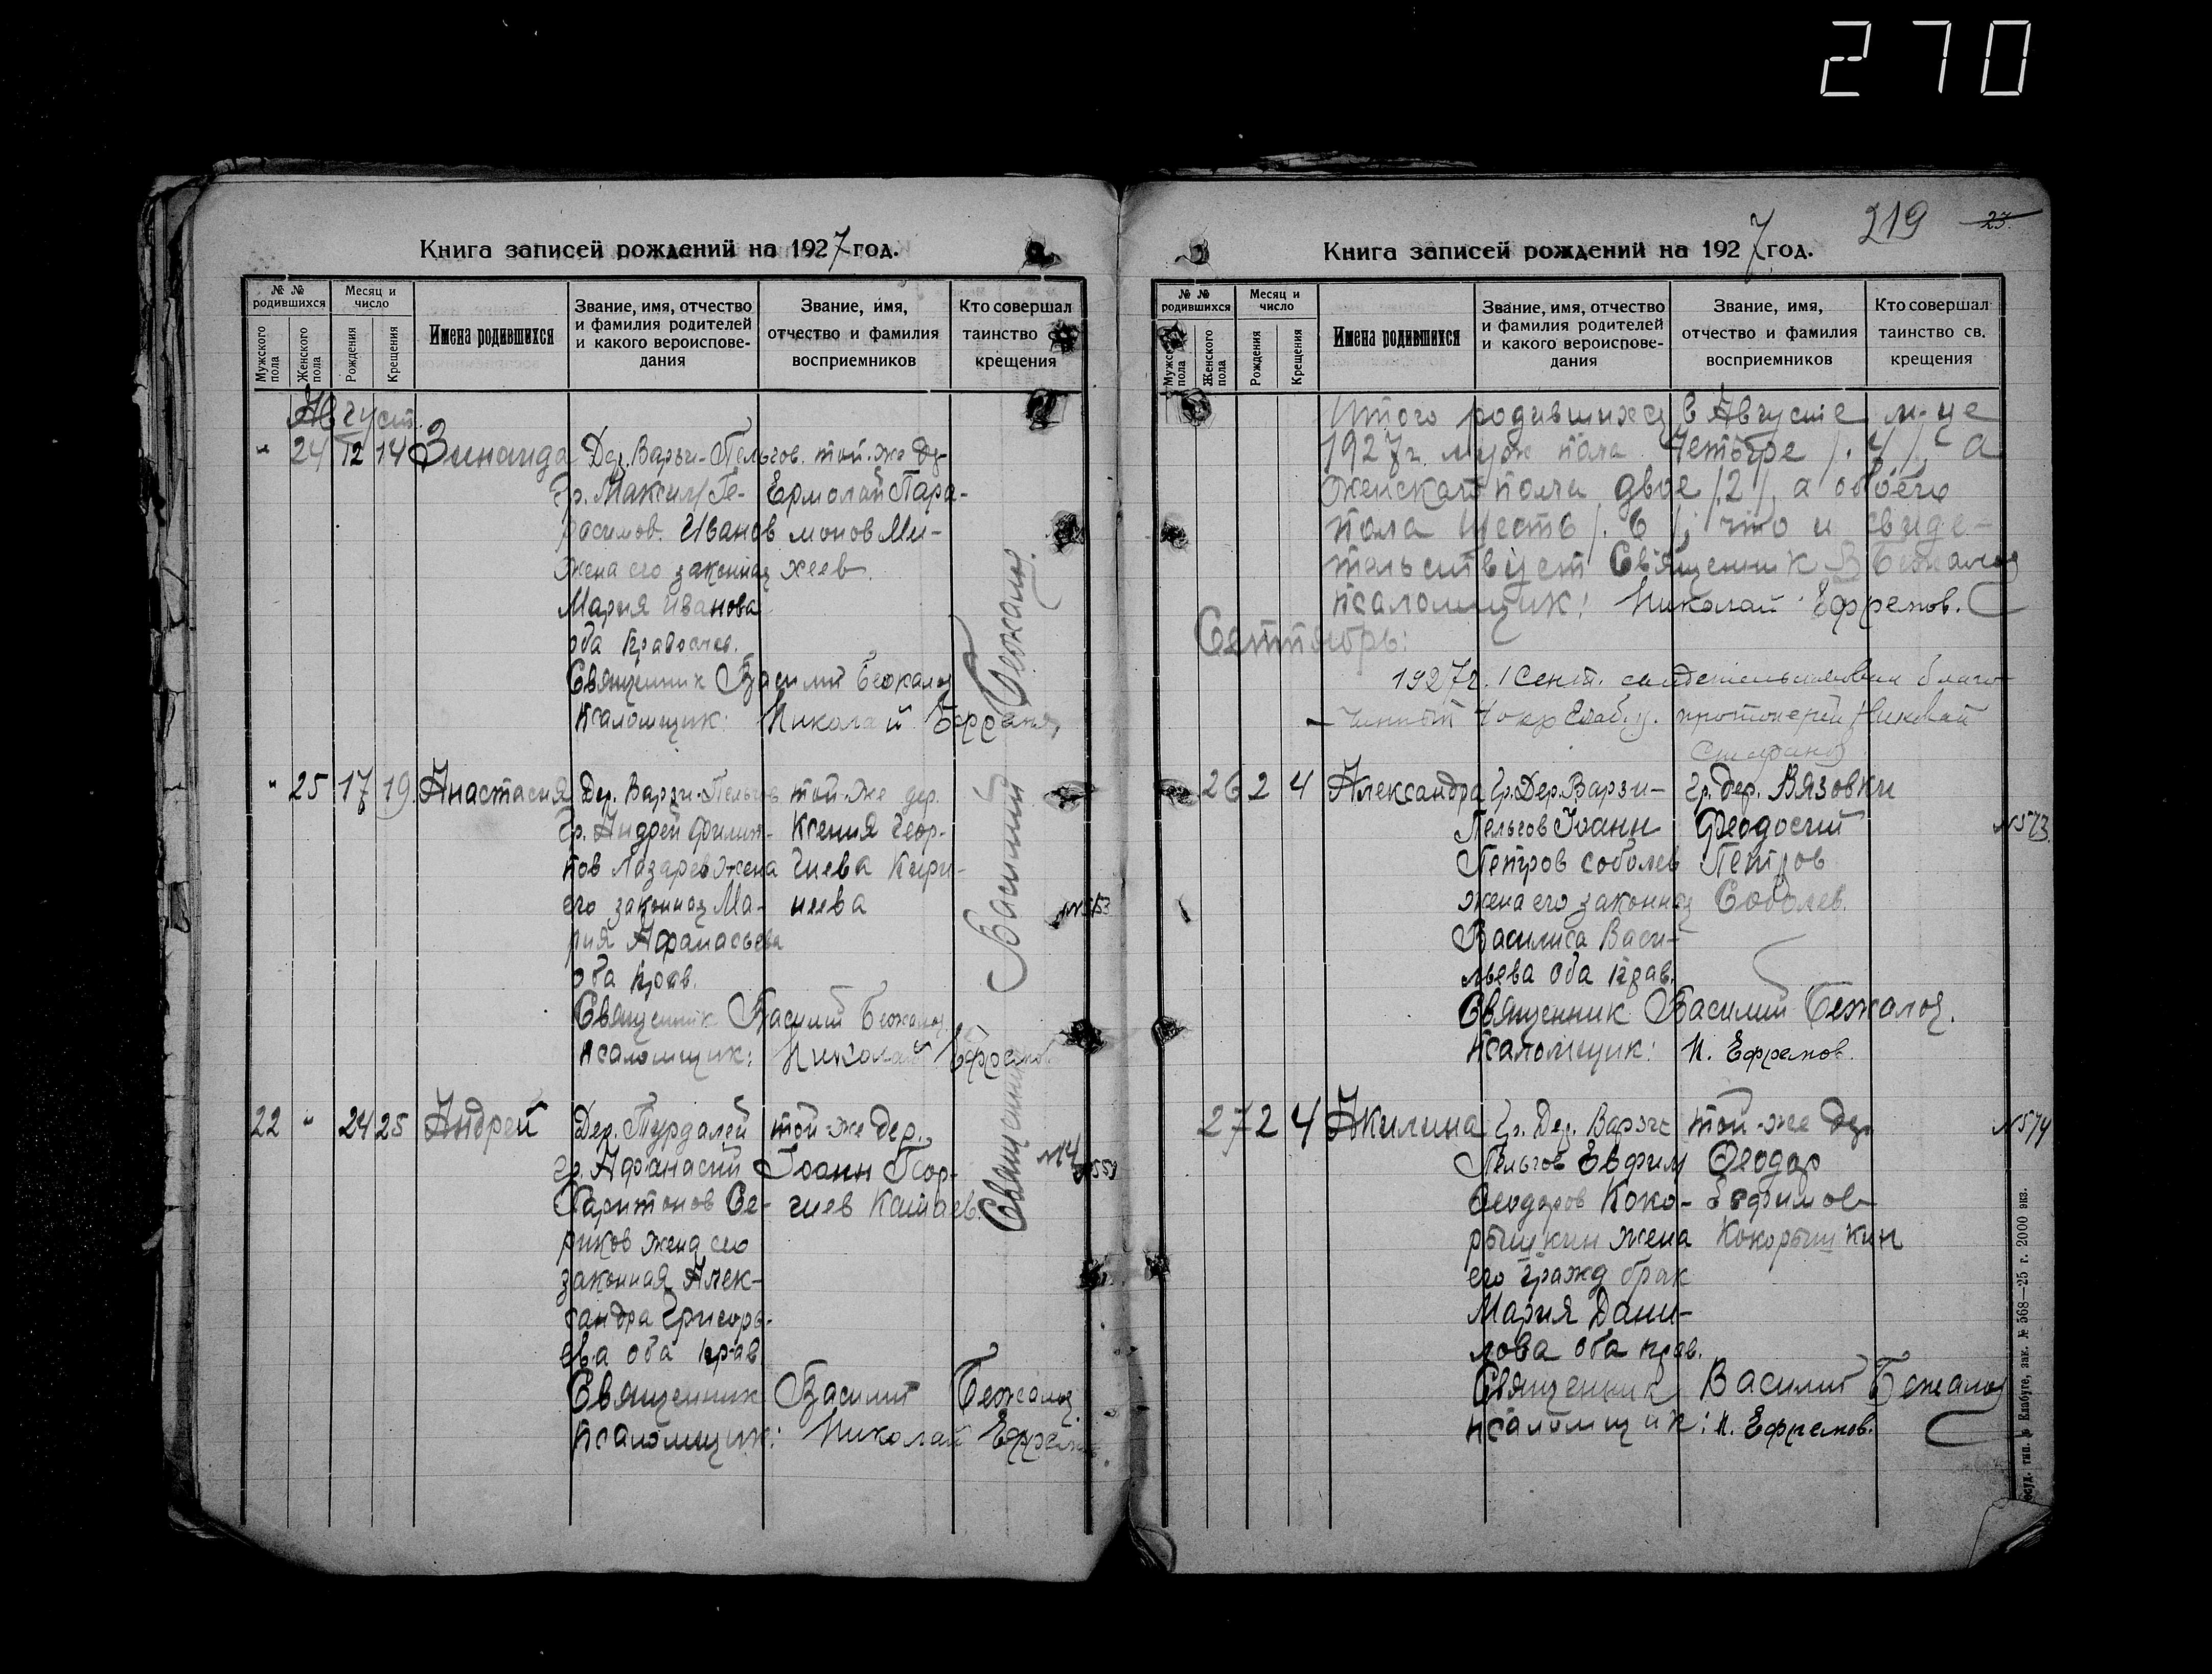 270
Книга записей рождений на 1927 год.
№ № родившихся
Мужского пола
Женского пола
Месяц и число
Рождения
Крещения
Имена родившихся
Звание, имя, отчество и фамилия родителей и какого вероисповедания
Звание, имя, отчество и фамилия восприемников
Кто совершал таинство крещения
Август.
" 24 12 14 Зинаида Дер. Варзи-Пельгов. той-же де-
гр. Максим Ге- Ермолай Пара-
расимов. Иванов монов Ми-
жена его законная хеев.
Мария Иванова
оба православ.
Священник Василий Бежалов
Псаломщик: Николай Ефремов
" 25 17 19 Анастасия Дер. Варзи-Пельгов той-же дер.
гр. Андрей Филип- Ксения Геор-
пов Лазарев жена гиева Кири-
его законная Ма- неева
рия Афанасьева
оба прав.
Священник Василий Бежалов
Псаломщик: Николай Ефремов
22 " 24 25 Андрей Дер. Турдалей той-же дер.
гр. Афанасий Иоанн Геор-
Харитонов Се- гиев Катаев.
риков жена его
законная Алек-
сандра Григорь-
ева оба прав
Священник Василий Бежалов
Псаломщик: Николай Ефремов
Священник Василий Бежалов
Книга записей рождений на 1927 год.
219 23
№ № родившихся
пола
Женского пола
Месяц и число
Рождения
Крещения
Имена родившихся
Звание, имя, отчество и фамилия родителей и какого вероисповедания
Звание, имя, отчество и фамилия восприемников
Кто совершал таинство св. крещения
Итого родившихся в Августе м-це
1927 г. муж пола Четыре /. 4 /, а
женскаго пола двое /.2/, а обоего
пола шесть /. 6 /, что и свиде-
тельствует Священник В Бежалов
псаломщик: Николай Ефремов.
Сентябрь:
1927 г. 1 Сент. свидетельствовал благо-
чинный 1 окр Елаб. у. протоиерей Николай
26 2 4 Александра гр. Дер. Варзи- гр. дер. Вязовки
Пельгов Иоанн Феодосий
Петров Соболев Петров
жена его законная Соболев.
Василиса Васи-
льева оба прав.
Священник Василий Бежалов.
Псаломщик: Н. Ефремов.
N573
27 2 4 Акилина гр. Дер. Варзи той-же дер
Пельгов Евфим Феодор
Феодоров Коко- Евфимов
рышкин жена Кокорышкин
его гражд брак
Мария Дани-
лова оба прав.
Священник Василий Бежалов
псаломщик: Н. Ефремов.
N574
Елабуге, зак. № 568—25 г. 2000 экз.